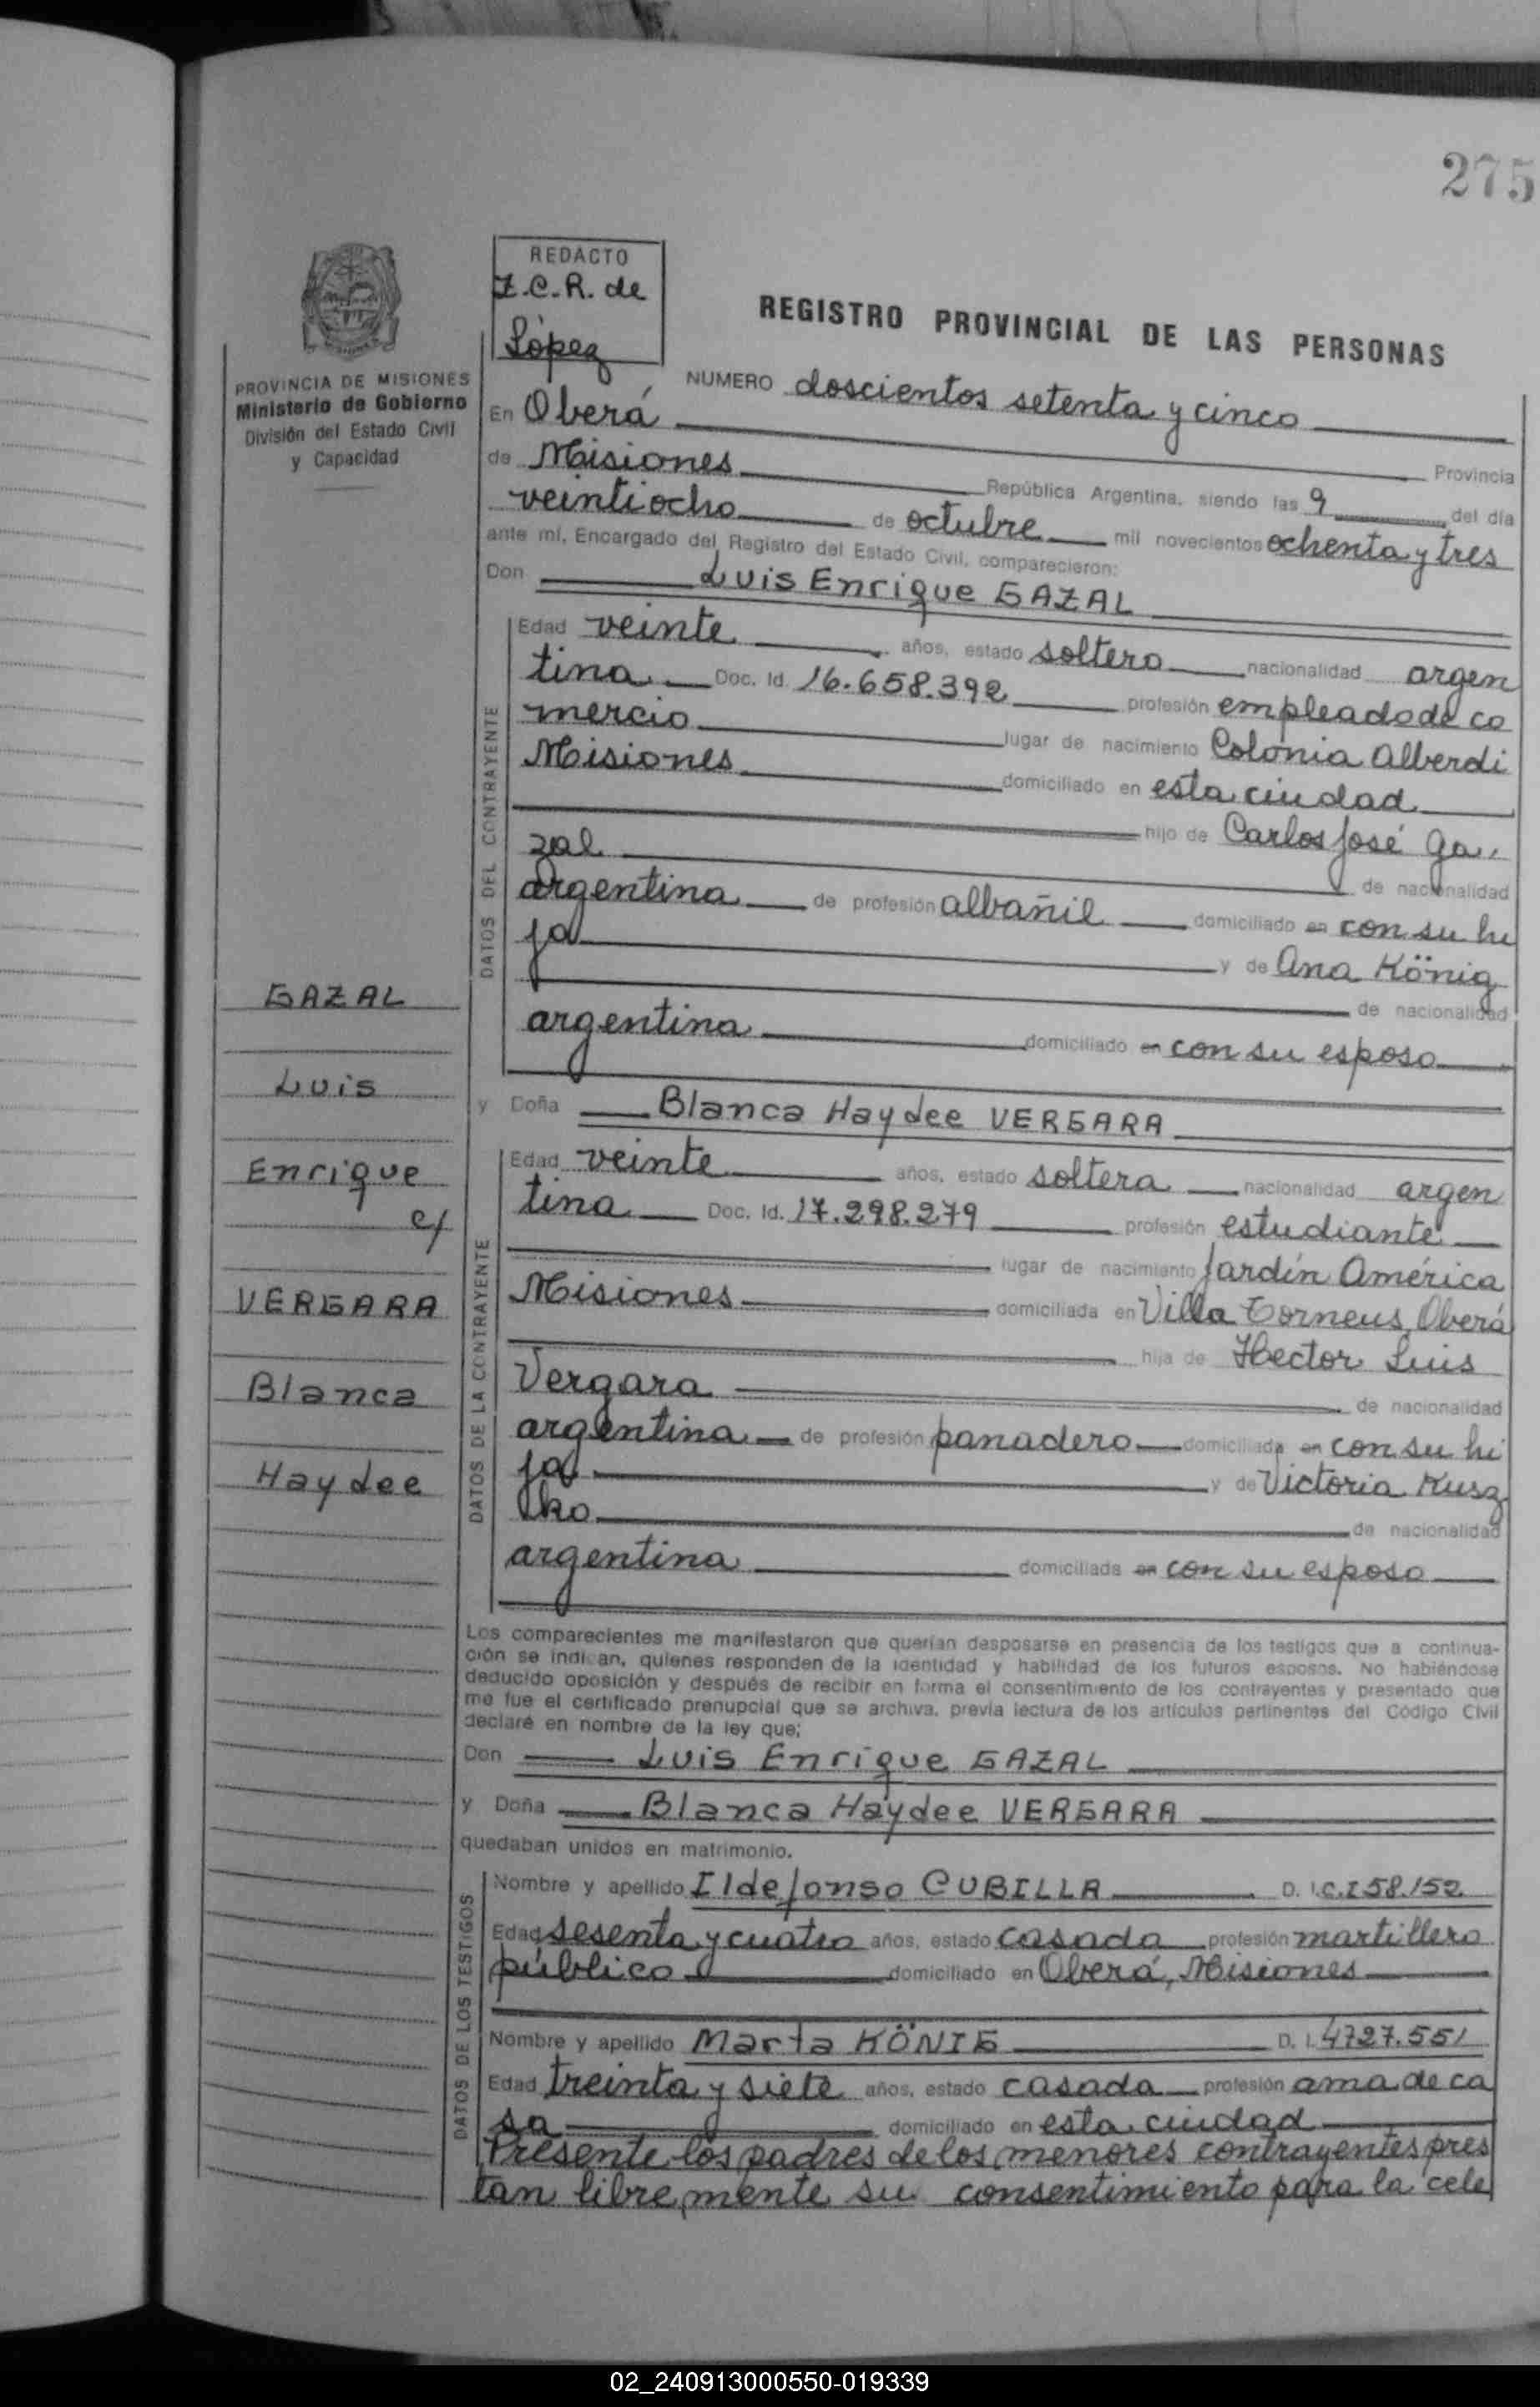 275
REDACTO
Z.C.R. de
López
REGISTRO PROVINCIAL DE LAS PERSONAS
PROVINCIA DE MISIONES
Ministerio de Gobierno
División del Estado Civil
y Capacidad
NUMERO doscientos setenta y cinco
En Oberá Provincia
de Misiones República Argentina, siendo las 9 del día
veintiocho de octubre mil novecientos ochenta y tres
ante mí, Encargado del Registro del Estado Civil, comparecieron:
Don Luis Enrique GAZAL
DATOS DEL CONTRAYENTE
Edad veinte años, estado soltero nacionalidad argen
tina Doc. Id. 16.658.392 profesión empleado de co
mercio lugar de nacimiento Colonia Alberdi
Misiones domiciliado en esta ciudad
hijo de Carlos José Ga
zal de nacionalidad
argentina de profesión albañil domiciliado en con su hi
jo y de Ana König
de nacionalidad
argentina domiciliado en con su esposo
y Doña Blanca Haydee VERGARA
DATOS DE LA CONTRAYENTE
Edad veinte años, estado soltera nacionalidad argen
tina Doc. Id. 17.298.279 profesión estudiante
lugar de nacimiento Jardín América
Misiones domiciliada en Villa Torneus, Oberá
hija de Hector Luis
Vergara de nacionalidad
argentina de profesión panadero domiciliada en con su hi
ja y de Victoria Kusz
ko de nacionalidad
argentina domiciliada en con su esposo
GAZAL
Luis
Enrique
c/
VERGARA
Blanca
Haydee
Los comparecientes me manifestaron que querían desposarse en presencia de los testigos que a continua-
ción se indican, quienes responden de la identidad y habilidad de los futuros esposos. No habiéndose
deducido oposición y después de recibir en forma el consentimiento de los contrayentes y presentado que
me fue el certificado prenupcial que se archiva, previa lectura de los artículos pertinentes del Código Civil
declaré en nombre de la ley que;
Don Luis Enrique GAZAL
y Doña Blanca Haydee VERGARA
quedaban unidos en matrimonio.
DATOS DE LOS TESTIGOS
Nombre y apellido Ildefonso CUBILLA D. I.C.I 58.152
Edad sesenta y cuatro años, estado casado profesión martillero
público domiciliado en Oberá, Misiones
Nombre y apellido Marta KÖNIG D. I. 4727.551
Edad treinta y siete años, estado casada profesión ama de ca
sa domiciliado en esta ciudad
Presente los padres de los menores contrayentes pres
tan libremente su consentimiento para la cele
02_240913000550-019339